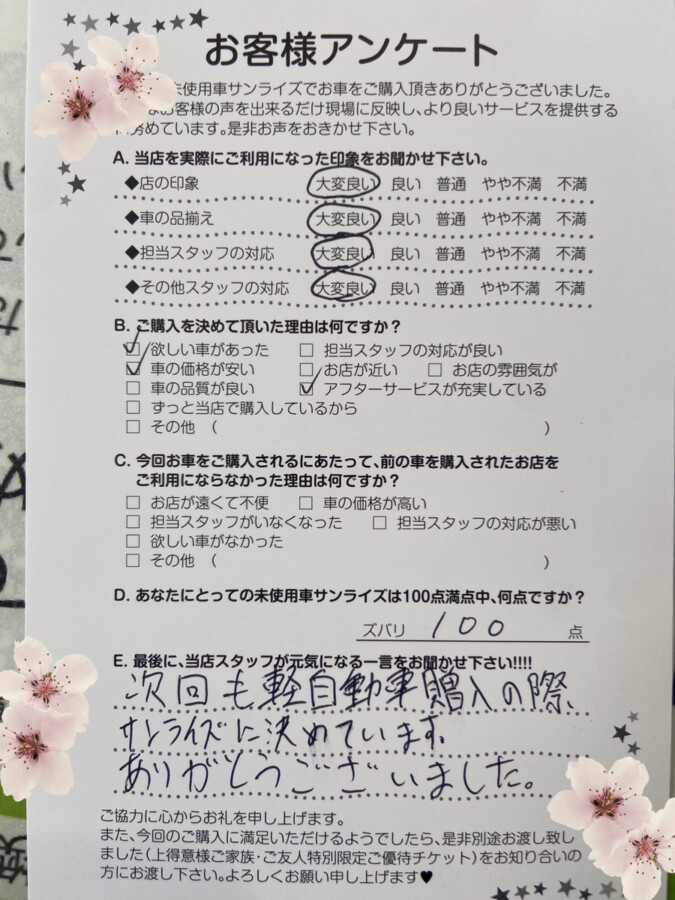 お客様アンケート
未使用車サンライズでお車をご購入頂きありがとうございました。
お客様の声を出来るだけ現場に反映し、より良いサービスを提供する
努めています。是非お声をおきかせ下さい。
A. 当店を実際にご利用になった印象をお聞かせ下さい。
◆店の印象 大変良い 良い 普通 やや不満 不満
◆車の品揃え 大変良い 良い 普通 やや不満 不満
◆担当スタッフの対応 大変良い 良い 普通 やや不満 不満
◆その他スタッフの対応 大変良い 良い 普通 やや不満 不満
B. ご購入を決めて頂いた理由は何ですか?
☑ 欲しい車があった □ 担当スタッフの対応が良い
☑ 車の価格が安い □ お店が近い □ お店の雰囲気が
□ 車の品質が良い ☑ アフターサービスが充実している
□ ずっと当店で購入しているから
□ その他 ( )
C. 今回お車をご購入されるにあたって、前の車を購入されたお店を
ご利用にならなかった理由は何ですか?
□ お店が遠くて不便 □ 車の価格が高い
□ 担当スタッフがいなくなった □ 担当スタッフの対応が悪い
□ 欲しい車がなかった
□ その他 ( )
D. あなたにとっての未使用車サンライズは100点満点中、何点ですか?
ズバリ 100 点
E. 最後に、当店スタッフが元気になる一言をお聞かせ下さい!!!!
次回も軽自動車購入の際、
サンライズに決めています。
ありがとうございました。
ご協力に心からお礼を申し上げます。
また、今回のご購入に満足いただけるようでしたら、是非別途お渡し致し
ました(上得意様ご家族・ご友人特別限定ご優待チケット)をお知り合いの
方にお渡し下さい。よろしくお願い申し上げます♥